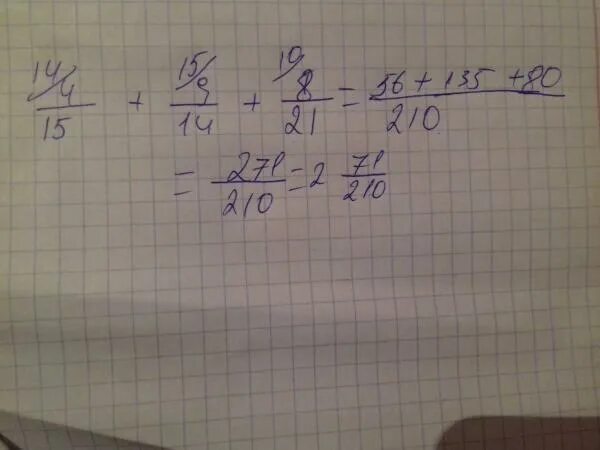 14/ 15/ 10/
4/15 + 9/14 + 8/21 = 56 + 135 + 80/210
= 271/210 = 2 71/210